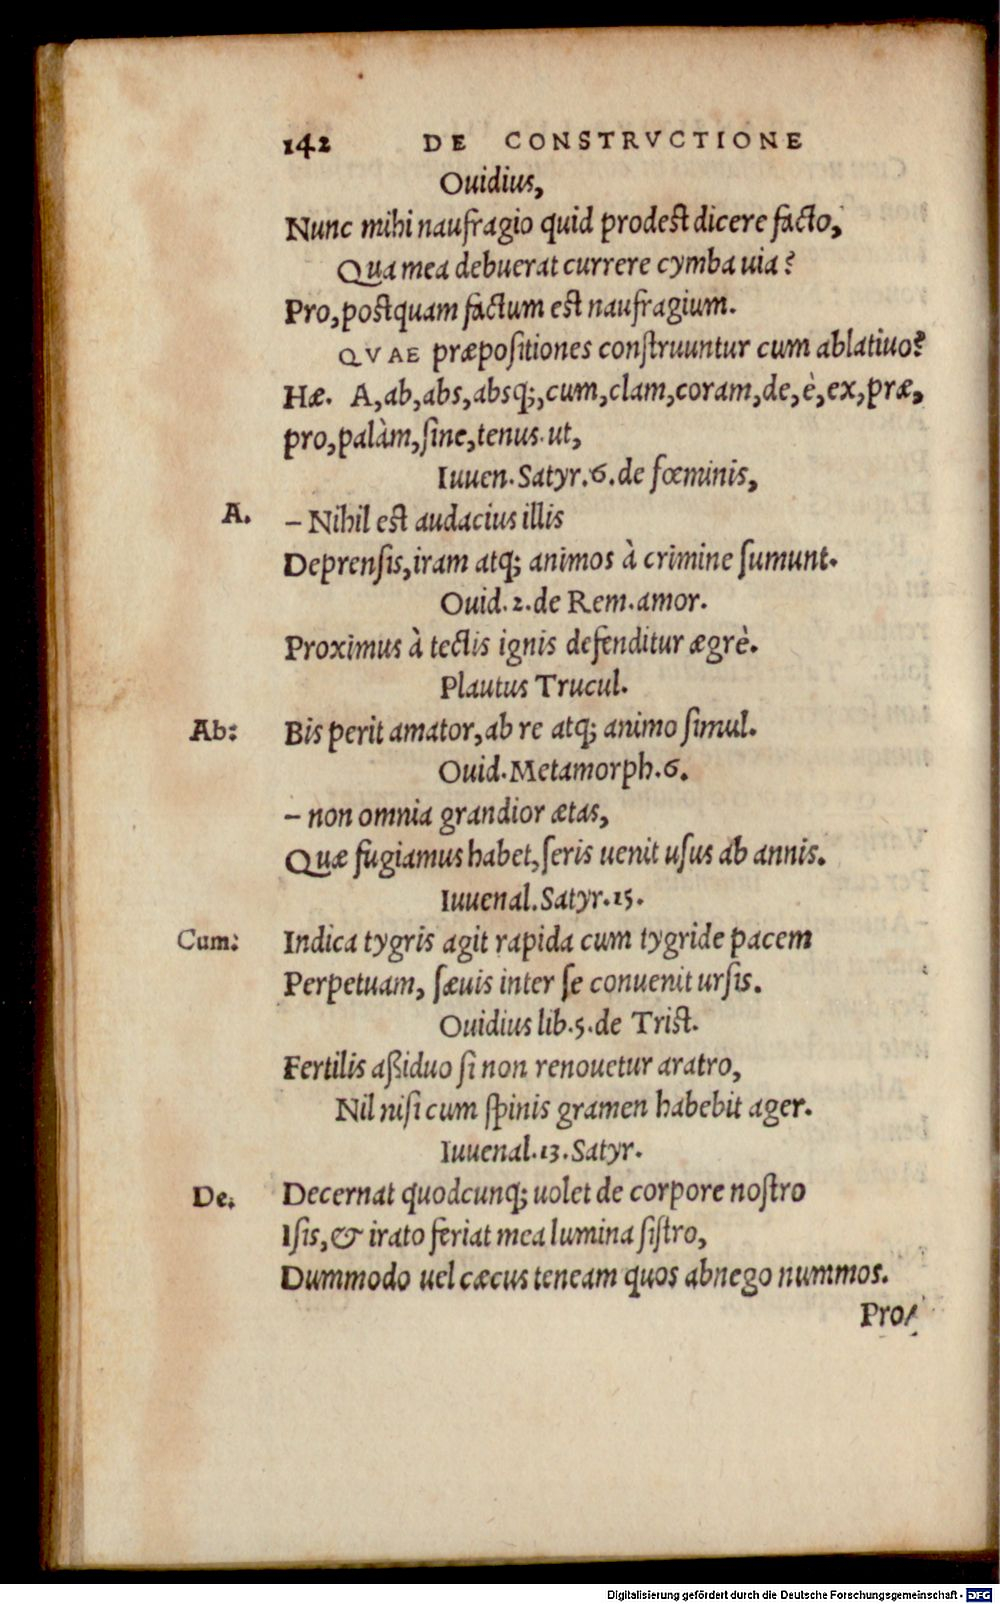 142 DE CONSTRVCTIONE
Ouidius,
Nunc mihi naufragio quid prodest dicere facto,
Qua mea debuerat currere cymba uia?
Pro, postquam factum est naufragium.
QVAE præpoſitiones conſtruuntur cum ablatiuo?
Hæ. A, ab, abs, absq;, cum, clam, coram, de, è, ex, præ,
pro, palàm, ſine, tenus. ut,
Iuuen. Satyr. 6. de fœminis,
A. – Nihil est audacius illis
Deprenſis, iram atq; animos à crimine ſumunt.
Ouid. 2. de Rem. amor.
Proximus à tectis ignis defenditur ægrè.
Plautus Trucul.
Ab: Bis perit amator, ab re atq; animo ſimul.
Ouid. Metamorph. 6.
– non omnia grandior ætas,
Quæ fugiamus habet, ſeris uenit uſus ab annis.
Iuuenal. Satyr. 15.
Cum: Indica tygris agit rapida cum tygride pacem
Perpetuam, ſæuis inter ſe conuenit urſis.
Ouidius lib. 5. de Trist.
Fertilis aßiduo ſi non renouetur aratro,
Nil niſi cum ſpinis gramen habebit ager.
Iuuenal. 13. Satyr.
De. Decernat quodcunq; uolet de corpore noſtro
Iſis, & irato feriat mea lumina ſiſtro,
Dummodo uel cæcus teneam quos abnego nummos.
Pro/
Digitalisierung gefördert durch die Deutsche Forschungsgemeinschaft - DFG